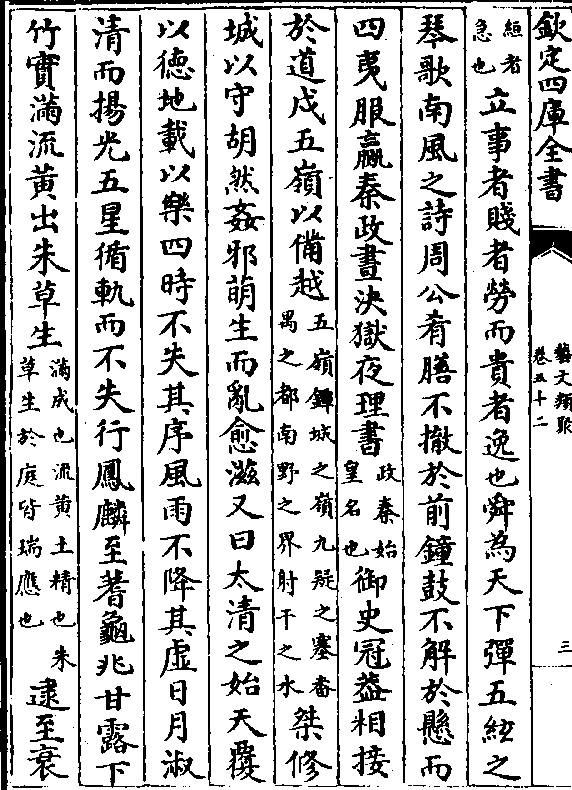 欽定四庫全書
藝文類聚
卷五十二
三
絙者
急也
立事者賤者勞而貴者逸也舜為天下彈五絃之
琴歌南風之詩周公肴膳不撤於前鐘鼓不解於懸而
四夷服嬴秦政晝決獄夜理書
政秦始
皇名也
御史冠蓋相接
於道戍五嶺以備越
五嶺鐔城之嶺九疑之塞番
禺之都南野之界射干之水
築修
城以守胡然姦邪萌生而亂愈滋又曰太清之始天覆
以德地載以樂四時不失其序風雨不降其虛日月淑
清而揚光五星循軌而不失行鳳麟至蓍龜兆甘露下
竹實滿流黃出朱草生
滿成也流黃土精也朱
草生於庭皆瑞應也
逮至衰